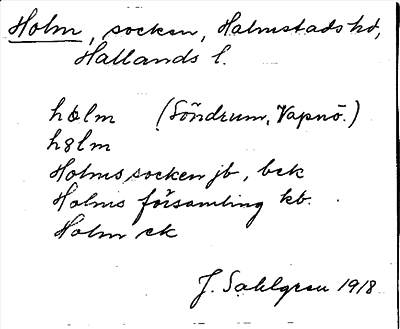 Holm, socken, Halmstads hd,
Hallands l.
hɷlm (Söndrum, Vapnö.)
hɞlm
Holms socken jb, bek
Holms församling kb.
Holm ek
J. Sahlgren 1918